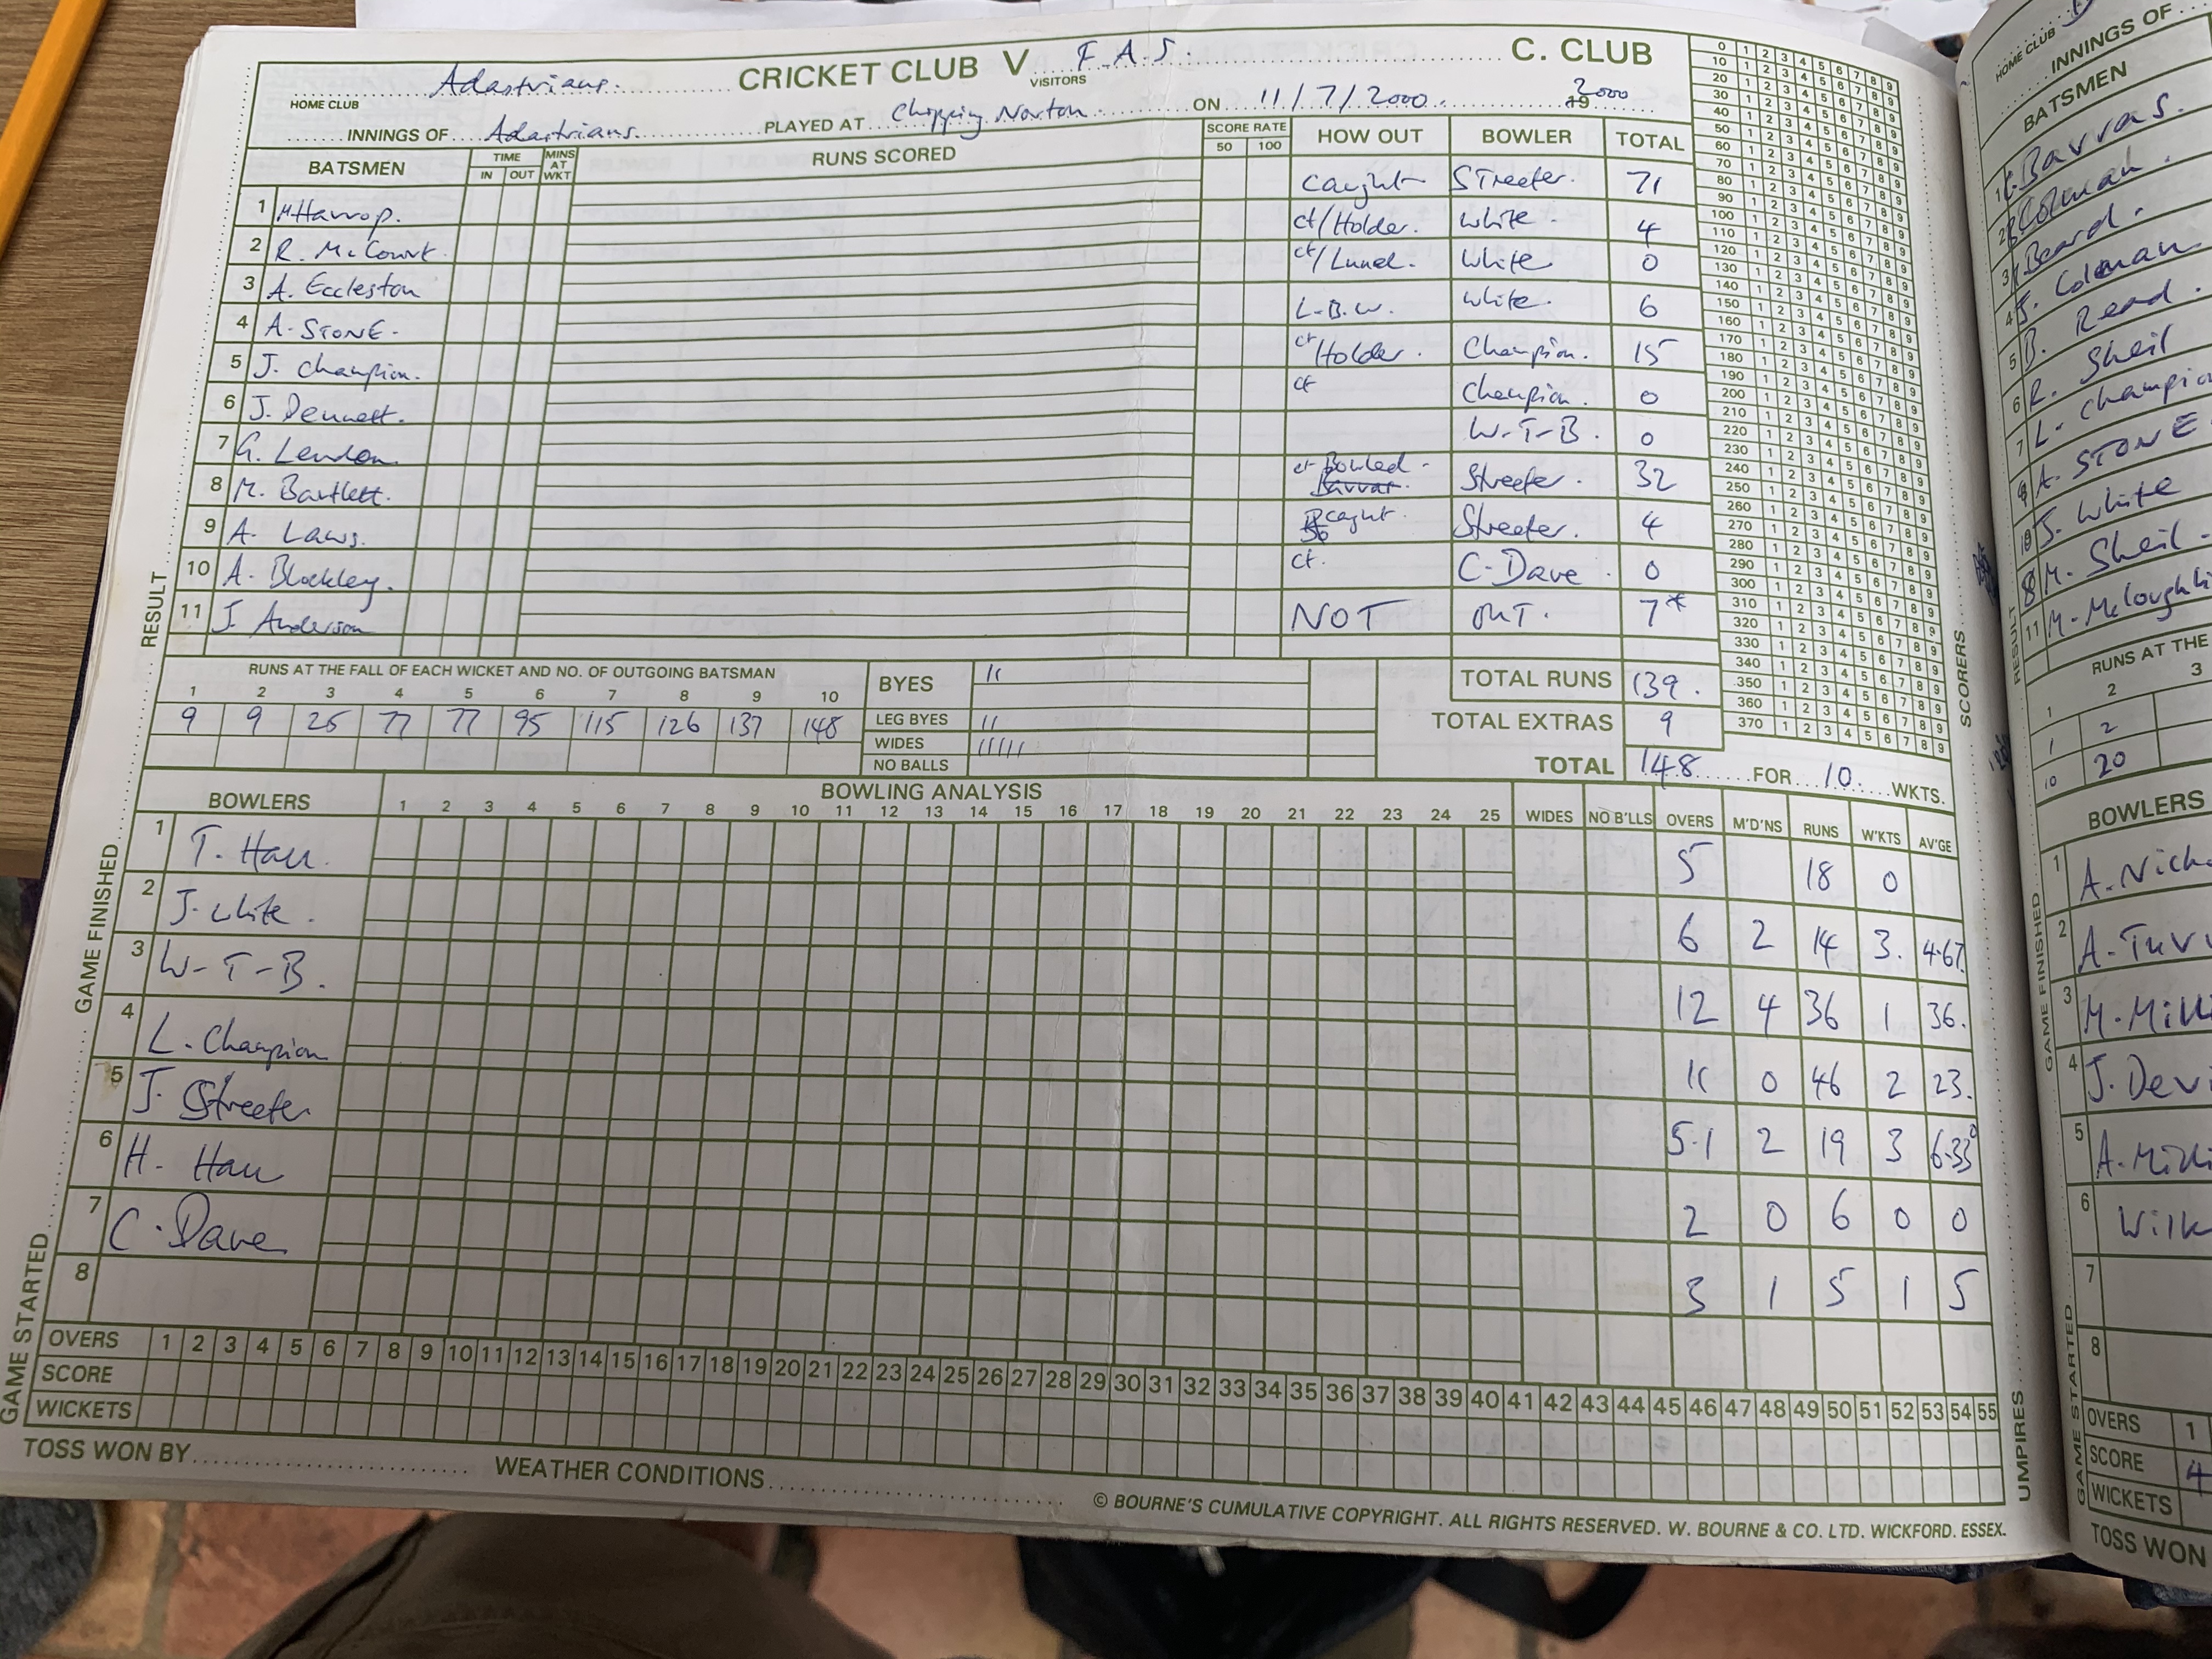 Adastrians. CRICKET CLUB V F.A.S. C. CLUB
HOME CLUB VISITORS
INNINGS OF Adastrians. PLAYED AT Chipping Norton ON 11/7/2000. 19 2000
BATSMEN TIME IN OUT MINS AT WKT RUNS SCORED SCORE RATE 50 100 HOW OUT BOWLER TOTAL
1 M Harrop. Caught Streeter. 71
2 R. McCourt. ct/Holder. White. 4
3 A. Eccleston ct/Lunel. White 0
4 A. STONE. L.B.W. White. 6
5 J. Champion. ct Holder. Champion. 15
6 J. Dennett. ct Champion. 0
7 G. Lendon W-T-B. 0
8 M. Bartlett. ct Bowled. Barras. Streeter. 32
9 A. Laws. caught. Streeter. 4
10 A. Blockley. ct. C. Dave. 0
11 J. Anderson NOT OUT. 7*
RUNS AT THE FALL OF EACH WICKET AND NO. OF OUTGOING BATSMAN
1 2 3 4 5 6 7 8 9 10
9 9 25 77 77 95 115 126 137 148
BYES 11 TOTAL RUNS 139.
LEG BYES 11 TOTAL EXTRAS 9
WIDES 11111
NO BALLS TOTAL 148 FOR 10 WKTS.
BOWLERS BOWLING ANALYSIS
1 2 3 4 5 6 7 8 9 10 11 12 13 14 15 16 17 18 19 20 21 22 23 24 25 WIDES NO B'LLS OVERS M'D'NS RUNS W'KTS AV'GE
1 T. Hall 5 18 0
2 J. White. 6 2 14 3. 4.67
3 W-T-B. 12 4 36 1 36.
4 L. Champion 11 0 46 2 23.
5 J. Streeter 5.1 2 19 3 6.33
6 H. Hall 2 0 6 0 0
7 C. Dave 3 1 5 1 5
8
OVERS 1 2 3 4 5 6 7 8 9 10 11 12 13 14 15 16 17 18 19 20 21 22 23 24 25 26 27 28 29 30 31 32 33 34 35 36 37 38 39 40 41 42 43 44 45 46 47 48 49 50 51 52 53 54 55
SCORE
WICKETS
TOSS WON BY WEATHER CONDITIONS
© BOURNE'S CUMULATIVE COPYRIGHT. ALL RIGHTS RESERVED. W. BOURNE & CO. LTD. WICKFORD. ESSEX.
RESULT
GAME FINISHED
GAME STARTED
SCORERS
UMPIRES
HOME CLUB
INNINGS OF
BATSMEN
1 Barras.
2 Colman.
3 Beard.
4 J. Colman
5 B. Read.
6 R. Sheil
7 L. Champion
A. STONE
J. White
M. Sheil.
11 M. McLoughli
RUNS AT THE
1 2 3
1 2
10 20
BOWLERS
1 A. Nich
2 A. Turv
3 M. Milli
4 J. Devi
5 A. Milli
6 Wilk
7
8
OVERS 1
SCORE 4
WICKETS
TOSS WON
RESULT
GAME FINISHED
GAME STARTED